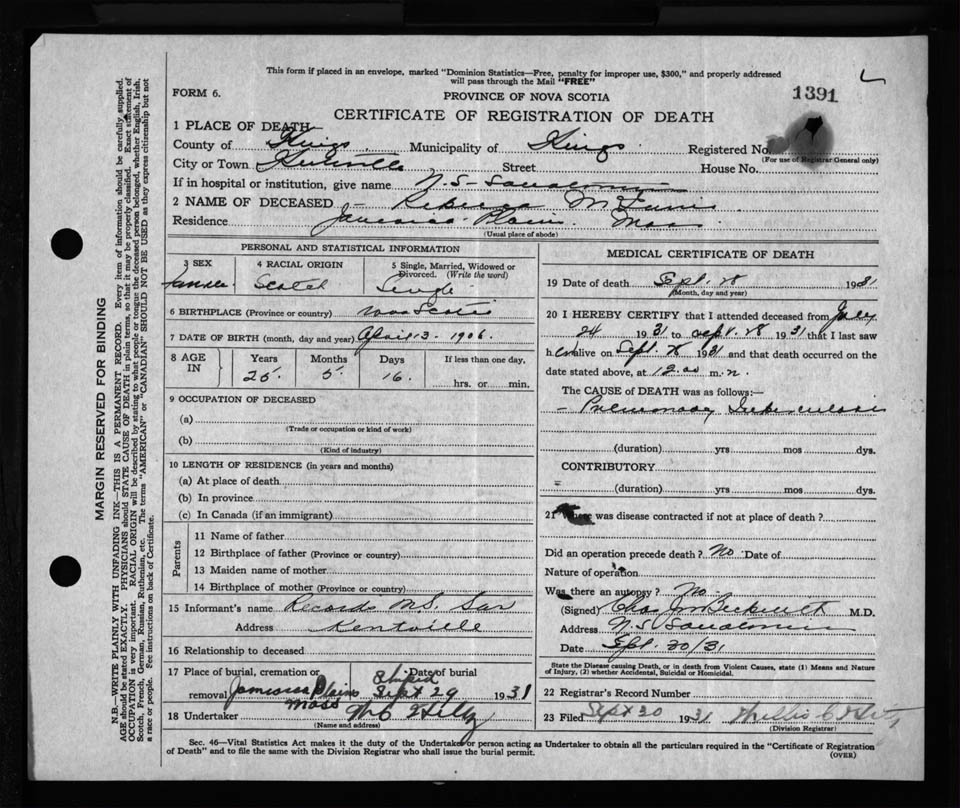 This form if placed in an envelope, marked "Dominion Statistics—Free, penalty for improper use, $300," and properly addressed
will pass through the Mail "FREE"
FORM 6.
PROVINCE OF NOVA SCOTIA
1391
CERTIFICATE OF REGISTRATION OF DEATH
1 PLACE OF DEATH
County of Kings Municipality of Kings Registered No.
(For use of Registrar General only)
City or Town Kentville Street House No.
If in hospital or institution, give name N.S. Sanatorium
2 NAME OF DECEASED - Rebecca
Residence Jamaica Plain Mass
(Usual place of abode)
PERSONAL AND STATISTICAL INFORMATION
3 SEX 4 RACIAL ORIGIN 5 Single, Married, Widowed or Divorced. (Write the word)
Female Scotch Single
6 BIRTHPLACE (Province or country) Nova Scotia
7 DATE OF BIRTH (month, day and year) April 3. 1906.
8 AGE IN Years Months Days If less than one day,
25. 5. 16. hrs. or min.
9 OCCUPATION OF DECEASED
(a)
(Trade or occupation or kind of work)
(b)
(Kind of industry)
10 LENGTH OF RESIDENCE (in years and months)
(a) At place of death
(b) In province
(c) In Canada (if an immigrant)
Parents
11 Name of father
12 Birthplace of father (Province or country)
13 Maiden name of mother
14 Birthplace of mother (Province or country)
15 Informant's name Records N.S. San
Address Kentville
16 Relationship to deceased
17 Place of burial, cremation or removal Jamaica Plains Mass Date of burial Shipped Sept 29 1931
18 Undertaker
(Name and address)
MEDICAL CERTIFICATE OF DEATH
19 Date of death Sept. 28 1931
(Month, day and year)
20 I HEREBY CERTIFY that I attended deceased from July
24 1931 to Sept. 28 1931 that I last saw
her alive on Sept. 28 1931 and that death occurred on the
date stated above, at 12.00 m.n.
The CAUSE of DEATH was as follows:—
- Pulmonary Tuberculosis
(duration) yrs mos dys.
CONTRIBUTORY
(duration) yrs mos dys.
21 Where was disease contracted if not at place of death?
Did an operation precede death? No Date of
Nature of operation
Was there an autopsy? No.
(Signed) M.D.
Address N.S. Sanatorium
Date Sept. 30/31
State the Disease causing Death, or in death from Violent Causes, state (1) Means and Nature
of Injury, (2) whether Accidental, Suicidal or Homicidal.
22 Registrar's Record Number
23 Filed Sept 30 1931
(Division Registrar)
Sec. 46—Vital Statistics Act makes it the duty of the Undertaker or person acting as Undertaker to obtain all the particulars required in the "Certificate of Registration
of Death" and to file the same with the Division Registrar who shall issue the burial permit.
(OVER)
MARGIN RESERVED FOR BINDING
N.B.—WRITE PLAINLY WITH UNFADING INK—THIS IS A PERMANENT RECORD. Every item of information should be carefully supplied.
AGE should be stated EXACTLY. PHYSICIANS should STATE CAUSE OF DEATH in plain terms, so that it may be properly classified. Exact statement of
OCCUPATION is very important. RACIAL ORIGIN will be described by stating to what people or tongue the deceased person belonged, whether English, Irish,
Scotch, French, German, Russian, Ruthenian, etc. The terms "AMERICAN" or "CANADIAN" SHOULD NOT BE USED as they express citizenship but not
a race or people. See instructions on back of Certificate.